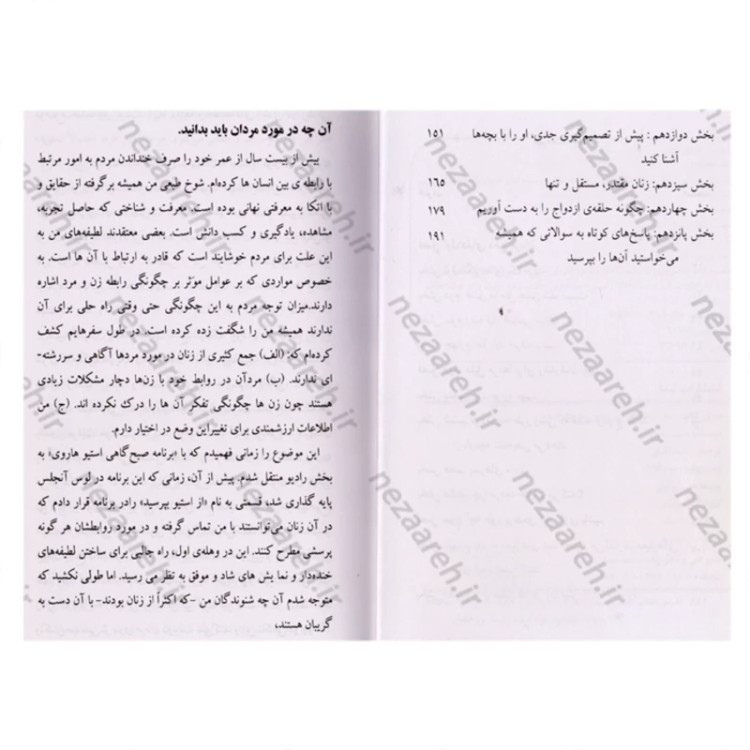 بخش دوازدهم: پیش از تصمیم‌گیری جدی، او را با بچه‌ها ۱۵۱
آشنا کنید
بخش سیزدهم: زنان مقتدر، مستقل و تنها ۱۶۵
بخش چهاردهم: چگونه حلقه‌ی ازدواج را به دست آوریم ۱۷۹
بخش پانزدهم: پاسخ‌های کوتاه به سوالاتی که همیشه ۱۹۱
می‌خواستید آن‌ها را بپرسید
آن چه در مورد مردان باید بدانید.
بیش از بیست سال از عمر خود را صرف خنداندن مردم به امور مرتبط
با رابطه ی بین انسان ها کرده‌ام. شوخ طبعی من همیشه برگرفته از حقایق و
با اتکا به معرفتی نهانی بوده است. معرفت و شناختی که حاصل تجربه،
مشاهده، یادگیری و کسب دانش است. بعضی معتقدند لطیفه‌های من به
این علت برای مردم خوشایند است که قادر به ارتباط با آن ها است. به
خصوص مواردی که بر عوامل موثر بر چگونگی رابطه زن و مرد اشاره
دارند.میزان توجه مردم به این چگونگی حتی وقتی راه حلی برای آن
ندارند همیشه من را شگفت زده کرده است. در طول سفرهایم کشف
کرده‌ام که: (الف) جمع کثیری از زنان در مورد مردها آگاهی و سررشته-
ای ندارند. (ب) مردآن در روابط خود با زن‌ها دچار مشکلات زیادی
هستند چون زن ها چگونگی تفکر آن ها را درک نکرده اند. (ج) من
اطلاعات ارزشمندی برای تغییراین وضع در اختیار دارم.
این موضوع را زمانی فهمیدم که با «برنامه صبح‌گاهی استیو هاروی» به
بخش رادیو منتقل شدم. پیش از آن، زمانی که این برنامه در لوس آنجلس
پایه گذاری شد، قسمتی به نام «از استیو بپرسید» رادر برنامه قرار دادم که
در آن زنان می‌توانستند با من تماس گرفته و در مورد روابطشان هر گونه
پرسشی مطرح کنند. این در وهله‌ی اول، راه جالبی برای ساختن لطیفه‌های
خنده‌دار و نما یش های شاد و موفق به نظر می رسید. اما طولی نکشید که
متوجه شدم آن چه شنوندگان من -که اکثراً از زنان بودند- با آن دست به
گریبان هستند،
nezaareh.ir
nezaareh.ir
nezaareh.ir
nezaareh.ir
nezaareh.ir
nezaareh.ir
nezaareh.ir
nezaareh.ir